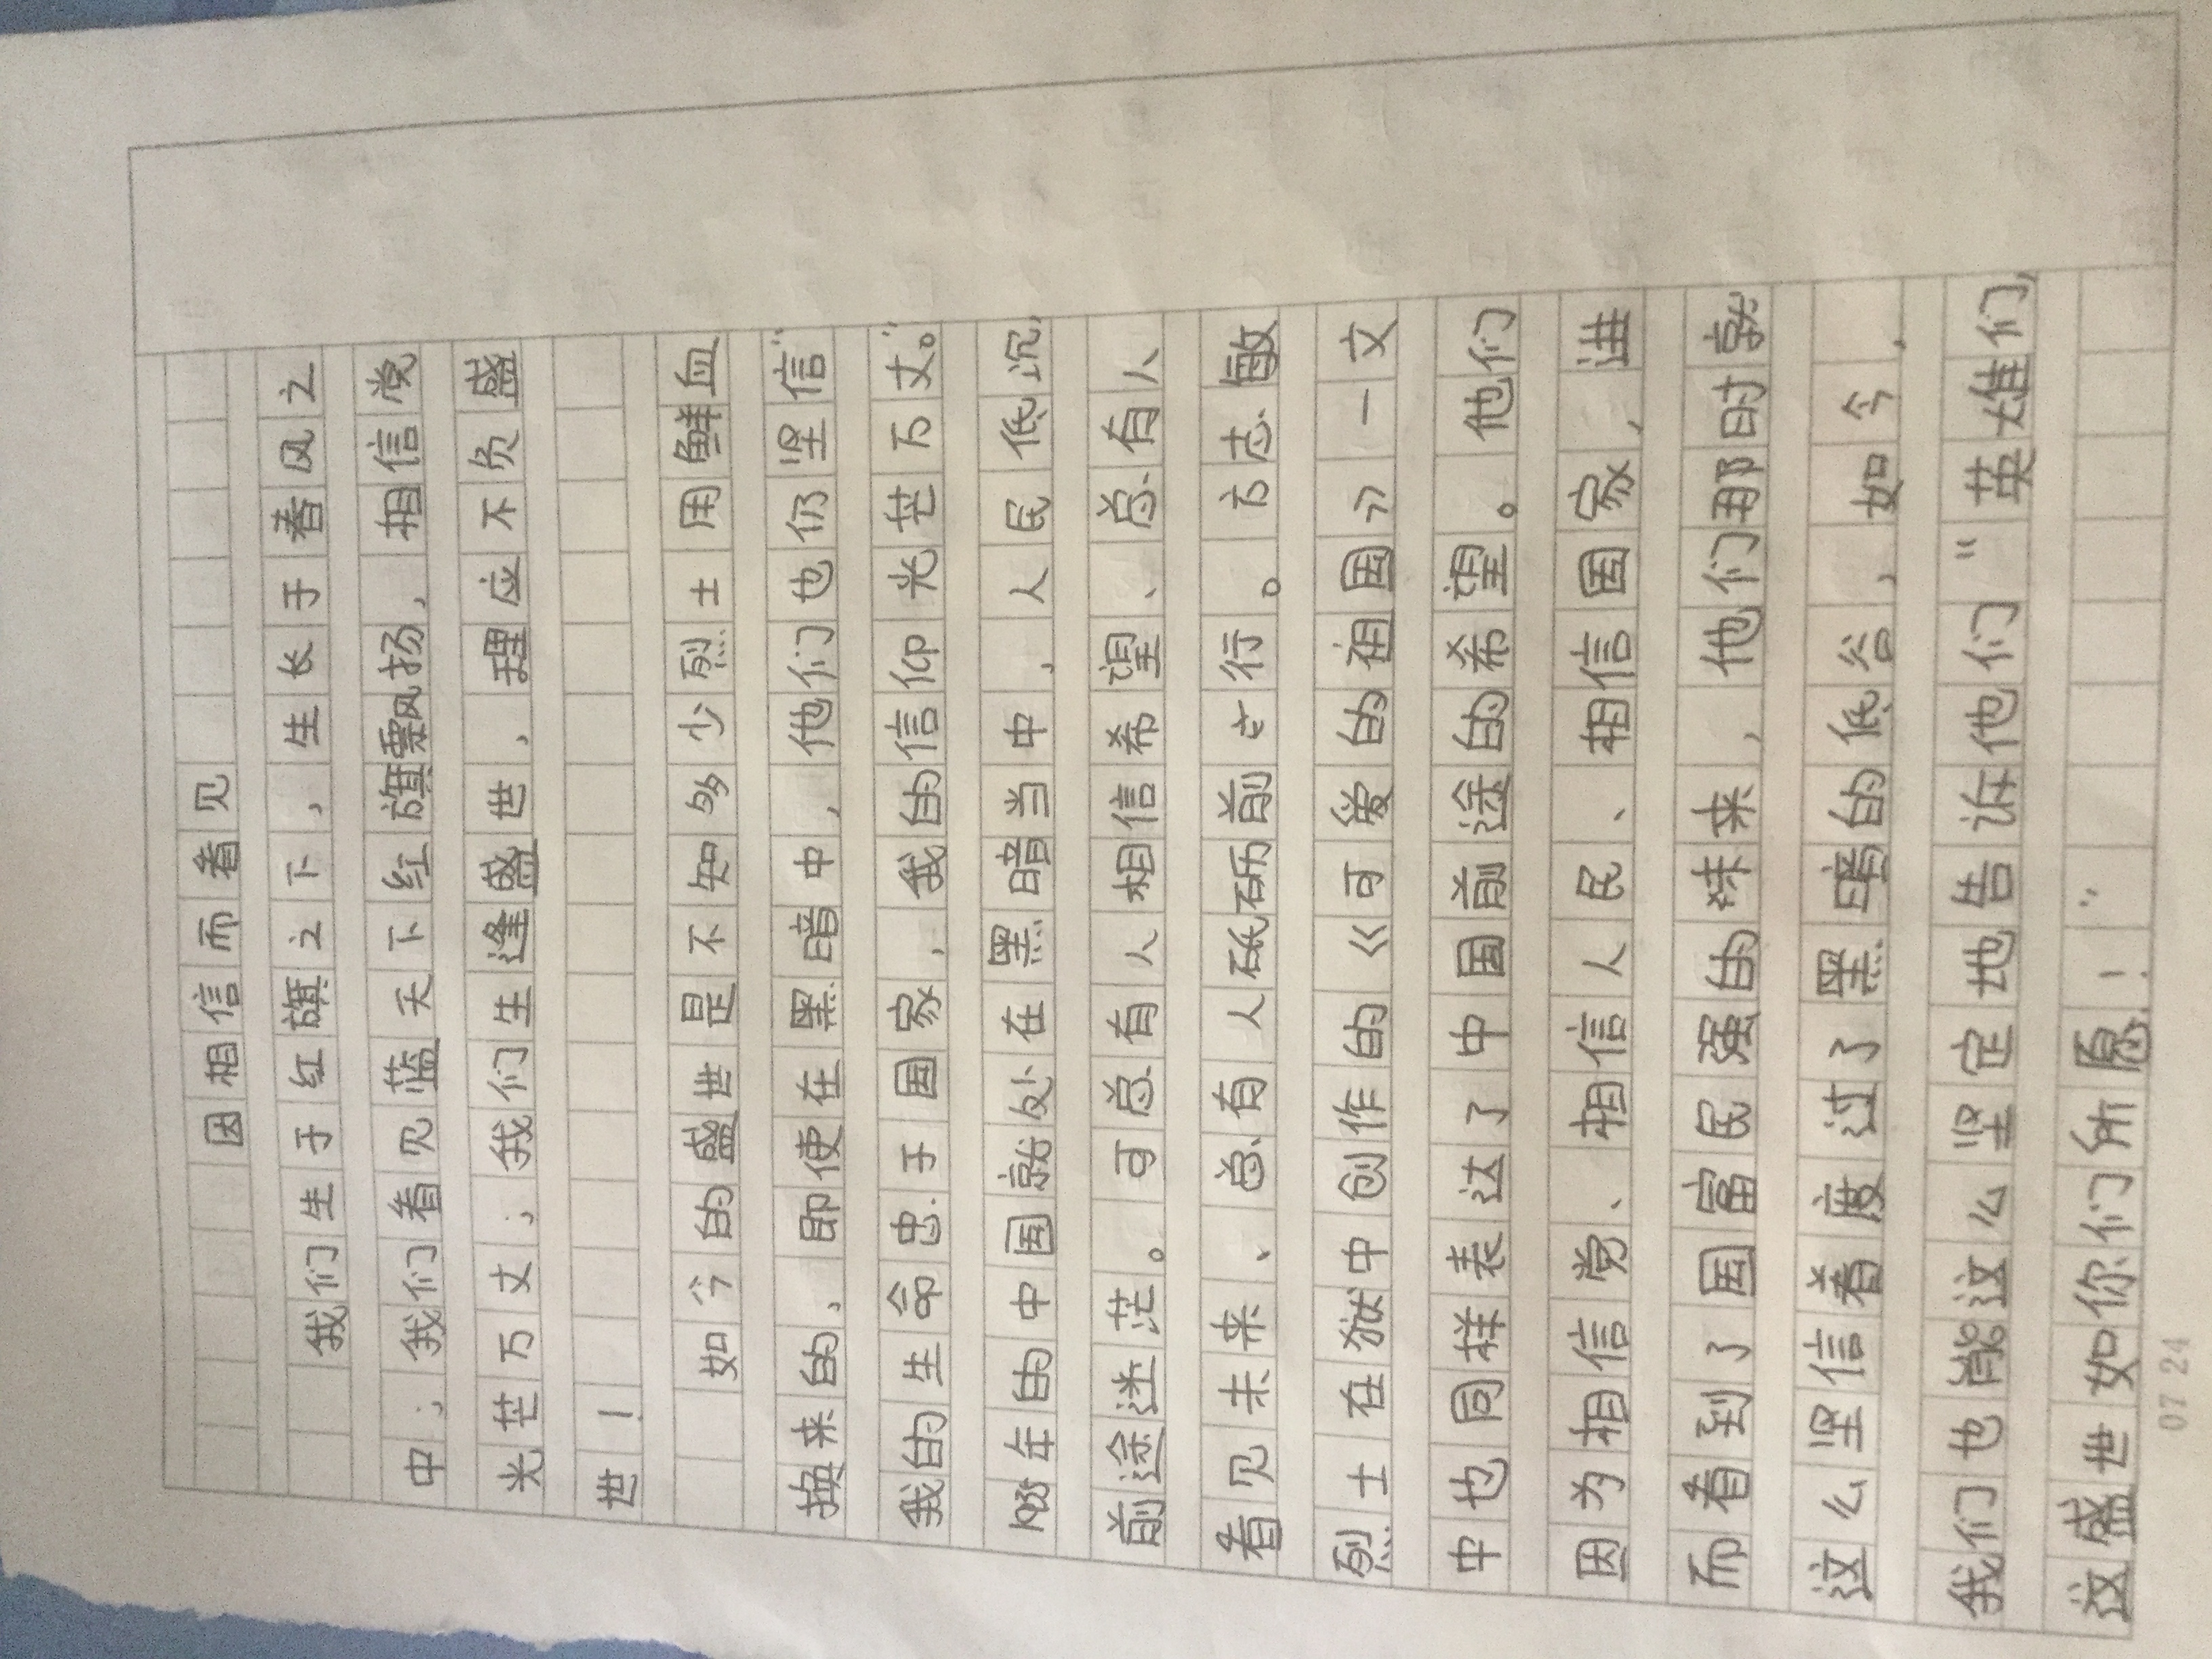 因相信而看见
我们生于红旗之下，生长于春风之
中；我们看见蓝天下红旗飘扬，相信党
光芒万丈；我们生逢盛世，理应不负盛
世！
如今的盛世是不知多少烈士用鲜血
换来的，即使在黑暗中，他们也仍坚信“
我的生命忠于国家，我的信仰光芒万丈。”
年的中国就处在黑暗当中，人民低沉，
前途迷茫。可总有人相信希望、总有人
看见未来、总有人砥砺前行。方志敏
烈士在狱中创作的《可爱的祖国》一文
中也同样表达了中国前途的希望。他们
因为相信党、相信人民、相信国家，进
而看到了国富民强的未来，他们那时就
这么坚信着度过了黑暗的低谷，如今，
我们也能这么坚定地告诉他们“英雄们，
这盛世如你们所愿！”
07 24